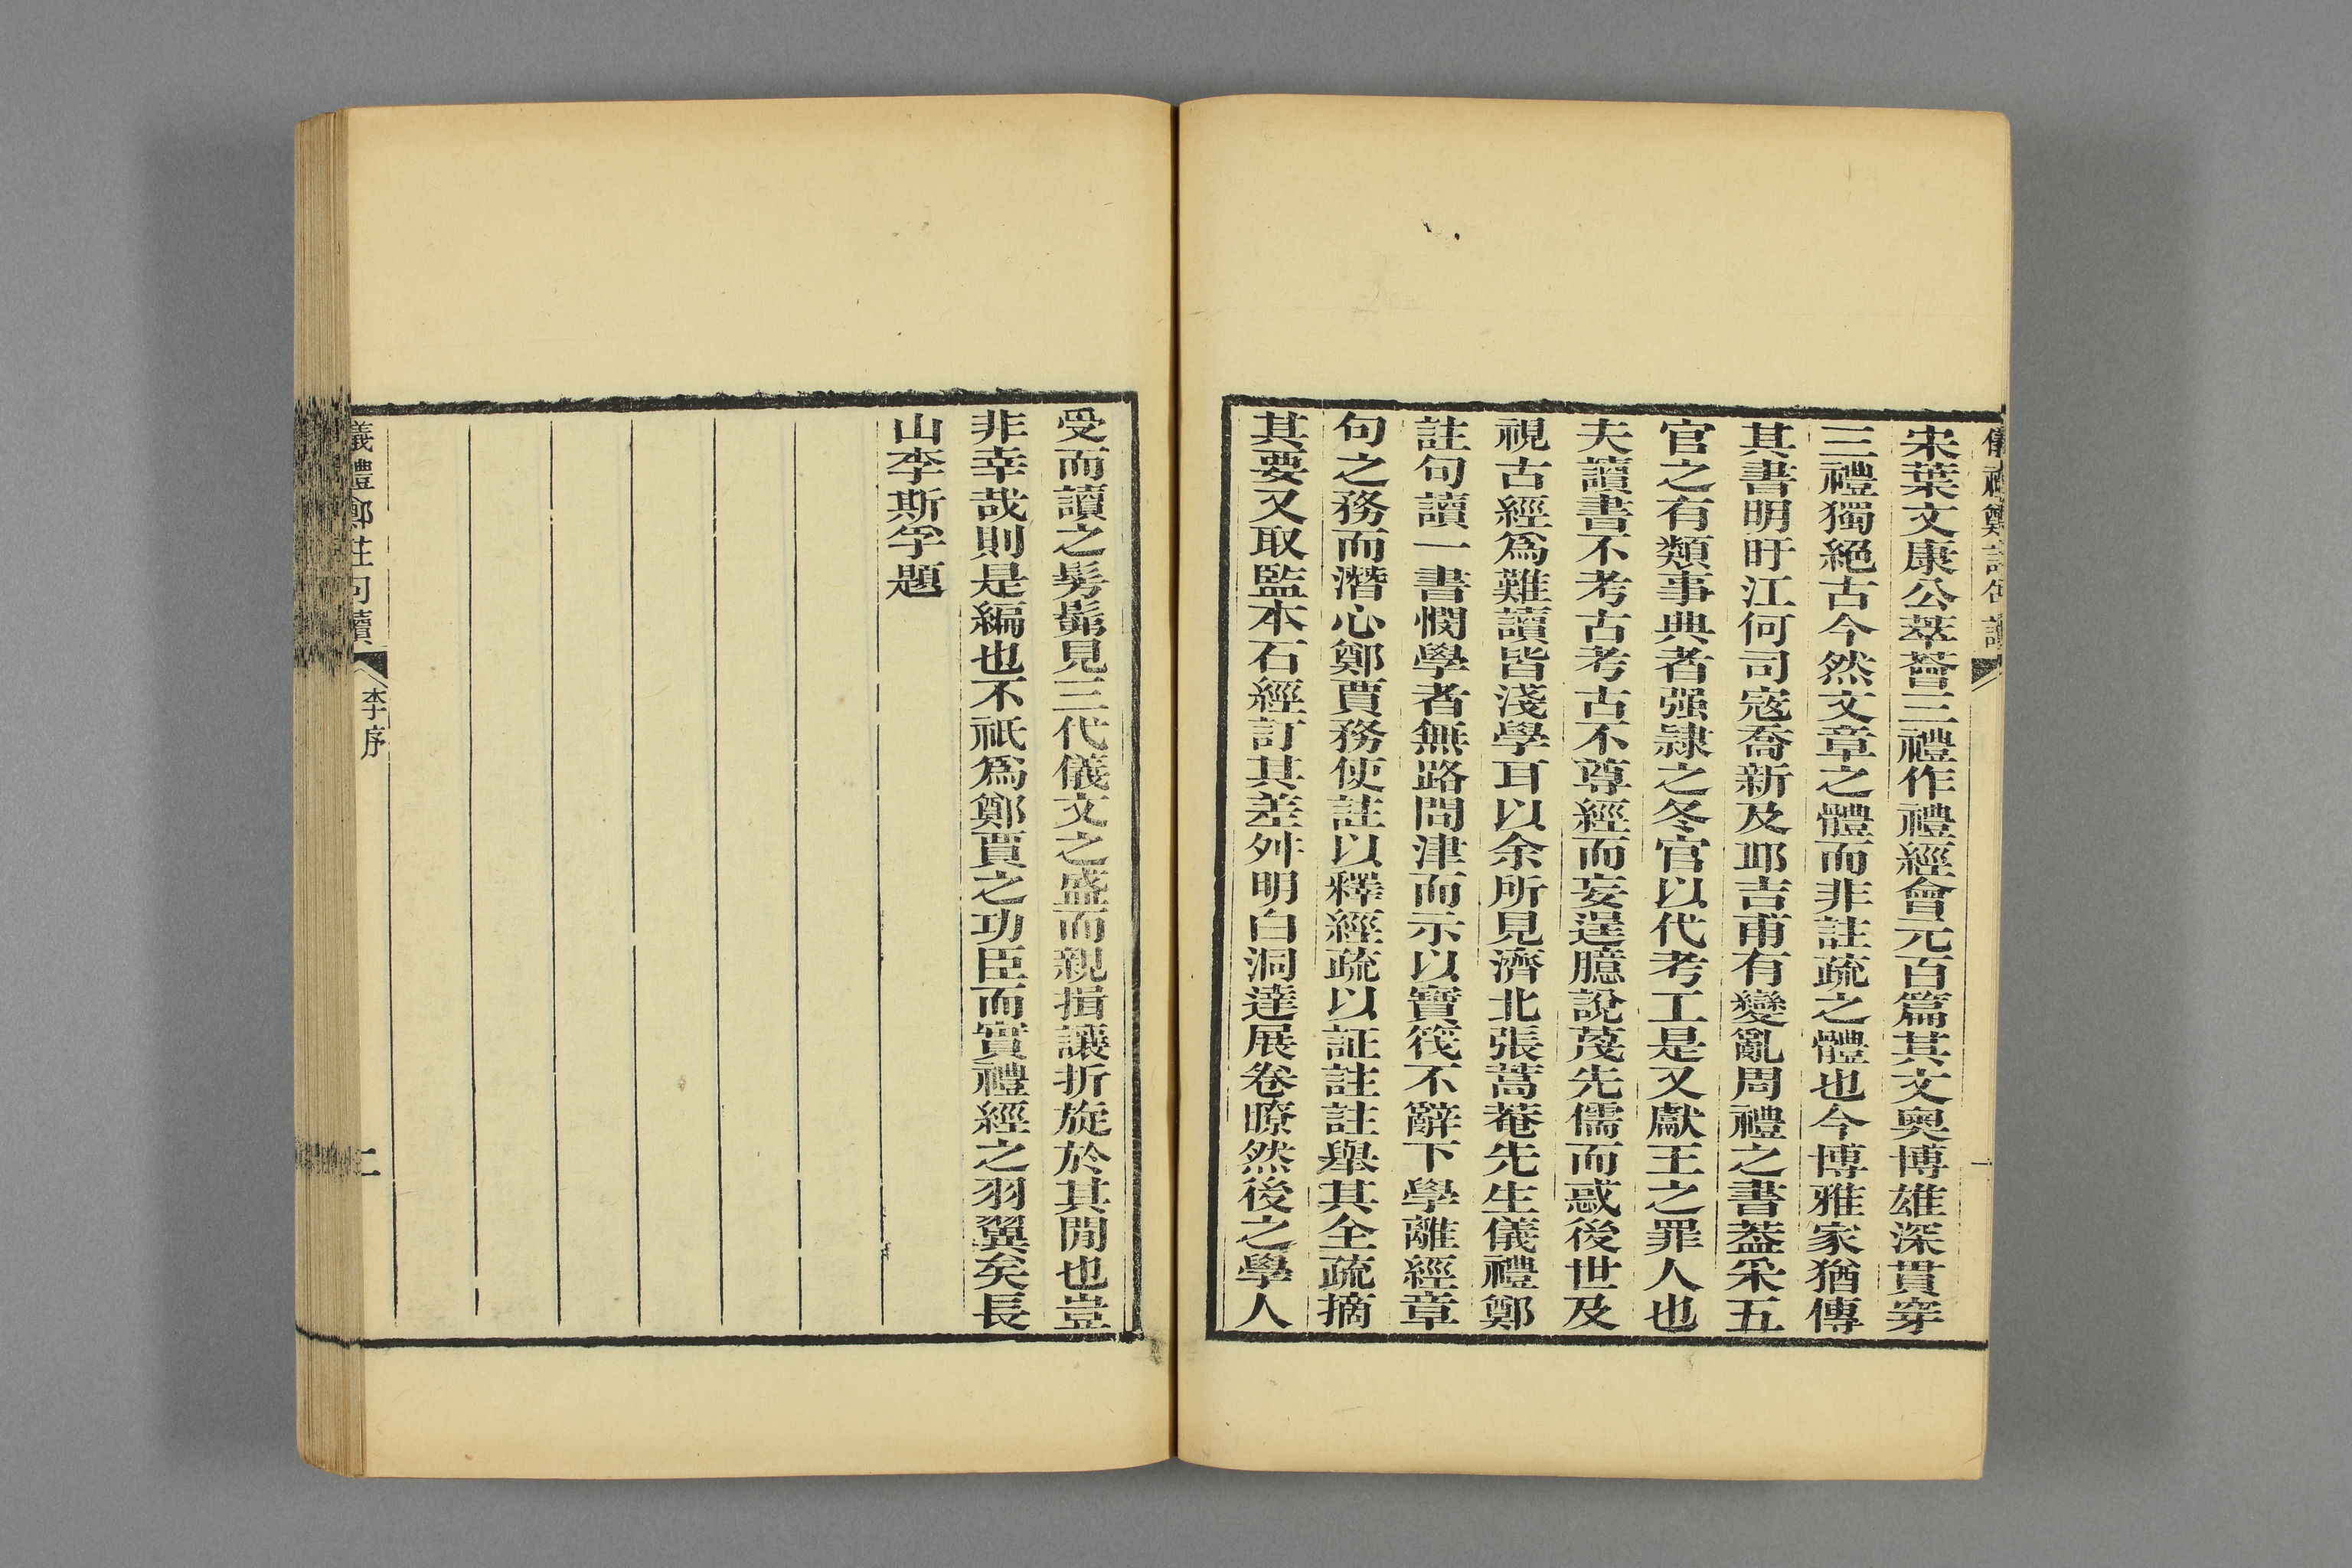 儀禮鄭註句讀
一
宋葉文康公萃薈三禮作禮經會元百篇其文奧博雄深貫穿
三禮獨絕古今然文章之體而非註疏之體也今博雅家猶傳
其書明盱江何司寇喬新及邱吉甫有變亂周禮之書葢采五
官之有類事典者强隷之冬官以代考工是又獻王之罪人也
夫讀書不考古考古不尊經而妄逞臆說蔑先儒而惑後世及
視古經爲難讀皆淺學耳以余所見濟北張蒿菴先生儀禮鄭
註句讀一書憫學者無路問津而示以寶筏不辭下學離經章
句之務而潛心鄭賈務使註以釋經疏以証註註舉其全疏摘
其要又取監本石經訂其差舛明白洞達展卷暸然後之學人
受而讀之髣髴見三代儀文之盛而親揖讓折旋於其閒也豈
非幸哉則是編也不祇爲鄭賈之功臣而實禮經之羽翼矣長
山李斯孚題
儀禮鄭註句讀
李序
二